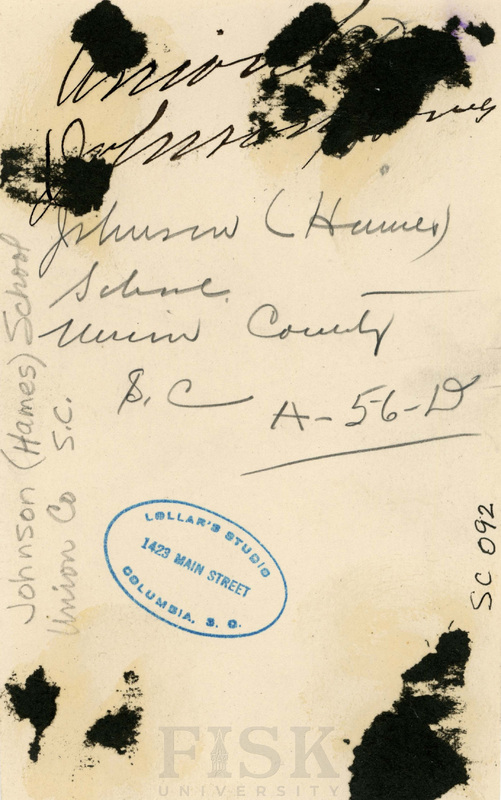 Union
Johnson
Johnson (Hames)
School
Union County
S.C
A-56-D
Johnson (Hames) School
Union Co S.C.
LOLLAR'S STUDIO
1423 MAIN STREET
COLUMBIA, S. C.
SC 092
FISK
UNIVERSITY